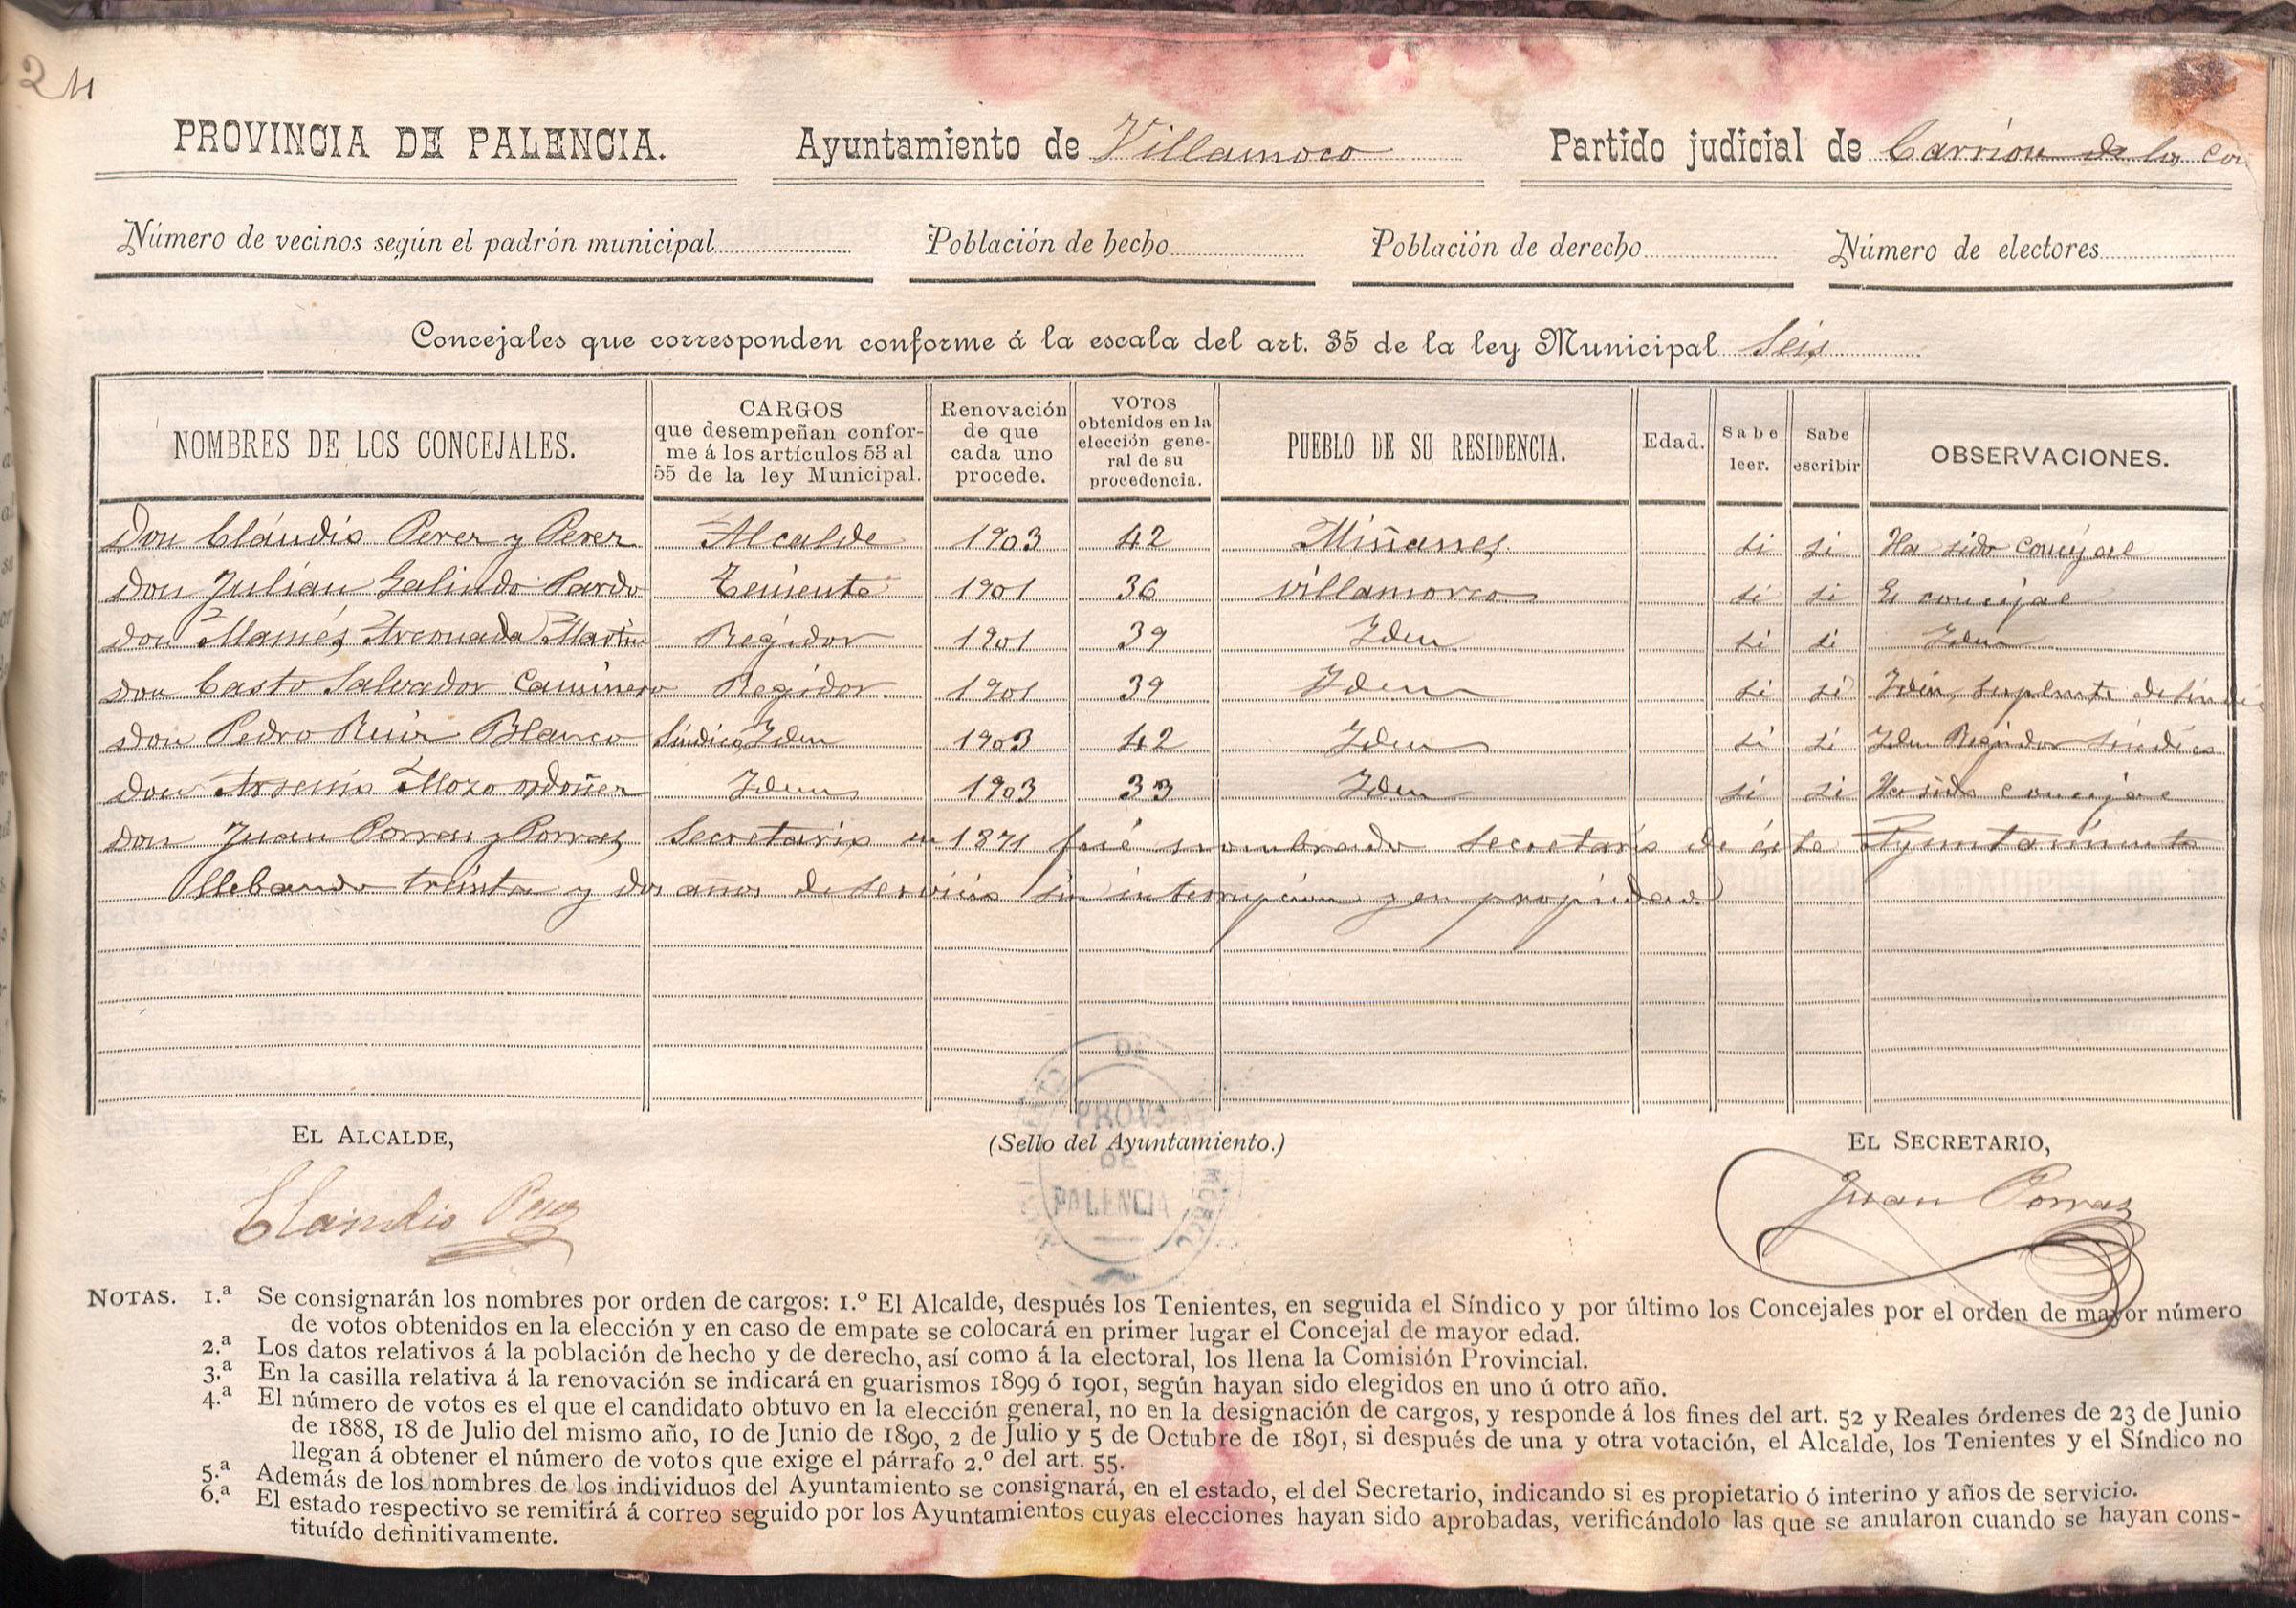 24
PROVINCIA DE PALENCIA. Ayuntamiento de Villamoco Partido judicial de Carrion de los Con
Número de vecinos según el padrón municipal Población de hecho Población de derecho Número de electores
Concejales que corresponden conforme á la escala del art. 35 de la ley Municipal Seis
NOMBRES DE LOS CONCEJALES.
CARGOS
que desempeñan confor-
me á los artículos 53 al
55 de la ley Municipal.
Renovación
de que
cada uno
procede.
VOTOS
obtenidos en la
elección gene-
ral de su
procedencia.
PUEBLO DE SU RESIDENCIA.
Edad.
Sabe
leer.
Sabe
escribir
OBSERVACIONES.
Don Cláudio Perez y Perez Alcalde 1903 42 Miñanes si si Ha sido concejal
Don Julián Galindo Pardo Teniente 1901 36 villamorco si si Es concejal
Don Mamés Arconada Martin Regidor 1901 39 Idem si si Idem
Don Casto Salvador Caminero Regidor 1901 39 Idem si si Idem suplente de sindic
Don Pedro Ruiz Blanco Síndico Idem 1903 42 Idem si si Idem Regidor sindico
Don Arsenio Mozo Ordoñez Idem 1903 33 Idem si si Ha sido concejal
Don Juan Porras y Porras Secretario en 1871 fué nombrado secretario de éste Ayuntamiento
llebando treinta y dos años de servicio sin interrupcion y en propiedad
EL ALCALDE, (Sello del Ayuntamiento.) EL SECRETARIO,
DE
PROVª
DE
PALENCIA
Claudio Perez
Juan Porras
NOTAS. 1.ª Se consignarán los nombres por orden de cargos: 1.º El Alcalde, después los Tenientes, en seguida el Síndico y por último los Concejales por el orden de mayor número
de votos obtenidos en la elección y en caso de empate se colocará en primer lugar el Concejal de mayor edad.
2.ª Los datos relativos á la población de hecho y de derecho, así como á la electoral, los llena la Comisión Provincial.
3.ª En la casilla relativa á la renovación se indicará en guarismos 1899 ó 1901, según hayan sido elegidos en uno ú otro año.
4.ª El número de votos es el que el candidato obtuvo en la elección general, no en la designación de cargos, y responde á los fines del art. 52 y Reales órdenes de 23 de Junio
de 1888, 18 de Julio del mismo año, 10 de Junio de 1890, 2 de Julio y 5 de Octubre de 1891, si después de una y otra votación, el Alcalde, los Tenientes y el Síndico no
llegan á obtener el número de votos que exige el párrafo 2.º del art. 55.
5.ª Además de los nombres de los individuos del Ayuntamiento se consignará, en el estado, el del Secretario, indicando si es propietario ó interino y años de servicio.
6.ª El estado respectivo se remitirá á correo seguido por los Ayuntamientos cuyas elecciones hayan sido aprobadas, verificándolo las que se anularon cuando se hayan cons-
tituído definitivamente.